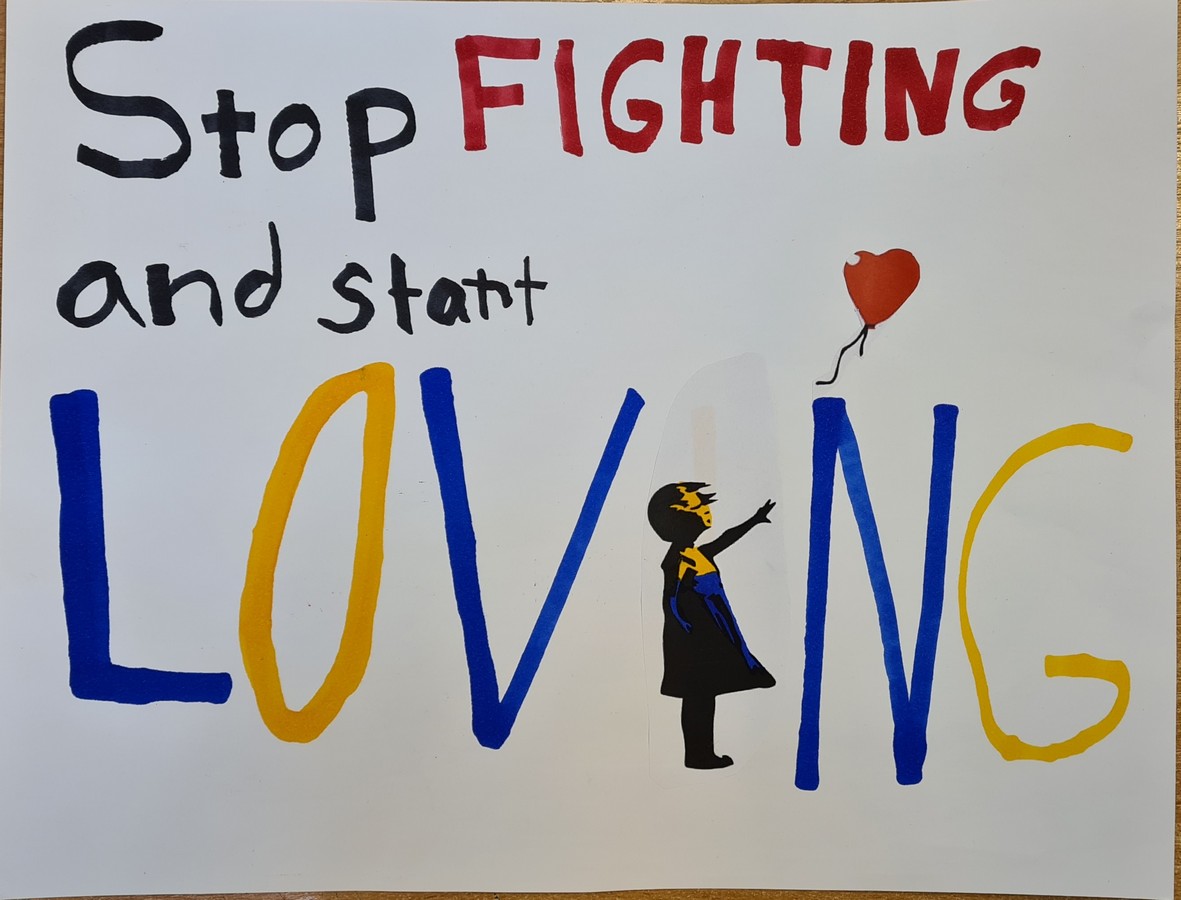 Stop FIGHTING
and start
LOVING